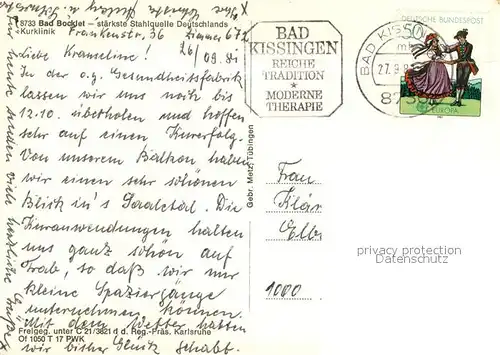 8733 Bad Bocklet – stärkste Stahlquelle Deutschlands
«Kurklinik Frankenstr. 36 Zimmer 672
26/09.81
Liebe Kranseline!
In der o.g. Gesundheitsfabrik
lassen wir uns noch bis
12.10. überholen und hoffen
sehr auf einen Kurerfolg.
Von unserem Balkon haben
wir einen sehr schönen
Blick in's Saaletal. Die
Kuranwendungen halten
uns ganz schön auf
Trab, so daß wir nur
kleine Spaziergänge
unternehmen können.
Mit dem Wetter hatten
wir bisher Glück gehabt.
Für heute senden viele herzliche Grüße
Freigeg. unter C 21/3821 d. d. Reg.-Präs. Karlsruhe
Of 1050 T 17 PWK
Gebr. Metz, Tübingen
BAD
KISSINGEN
REICHE
TRADITION
*
MODERNE
THERAPIE
BAD KIS
27.9.8
873
DEUTSCHE BUNDESPOST
50
EUROPA
Frau
Klär
Elbe
1000
privacy protection
ansichtskartenhandel.de